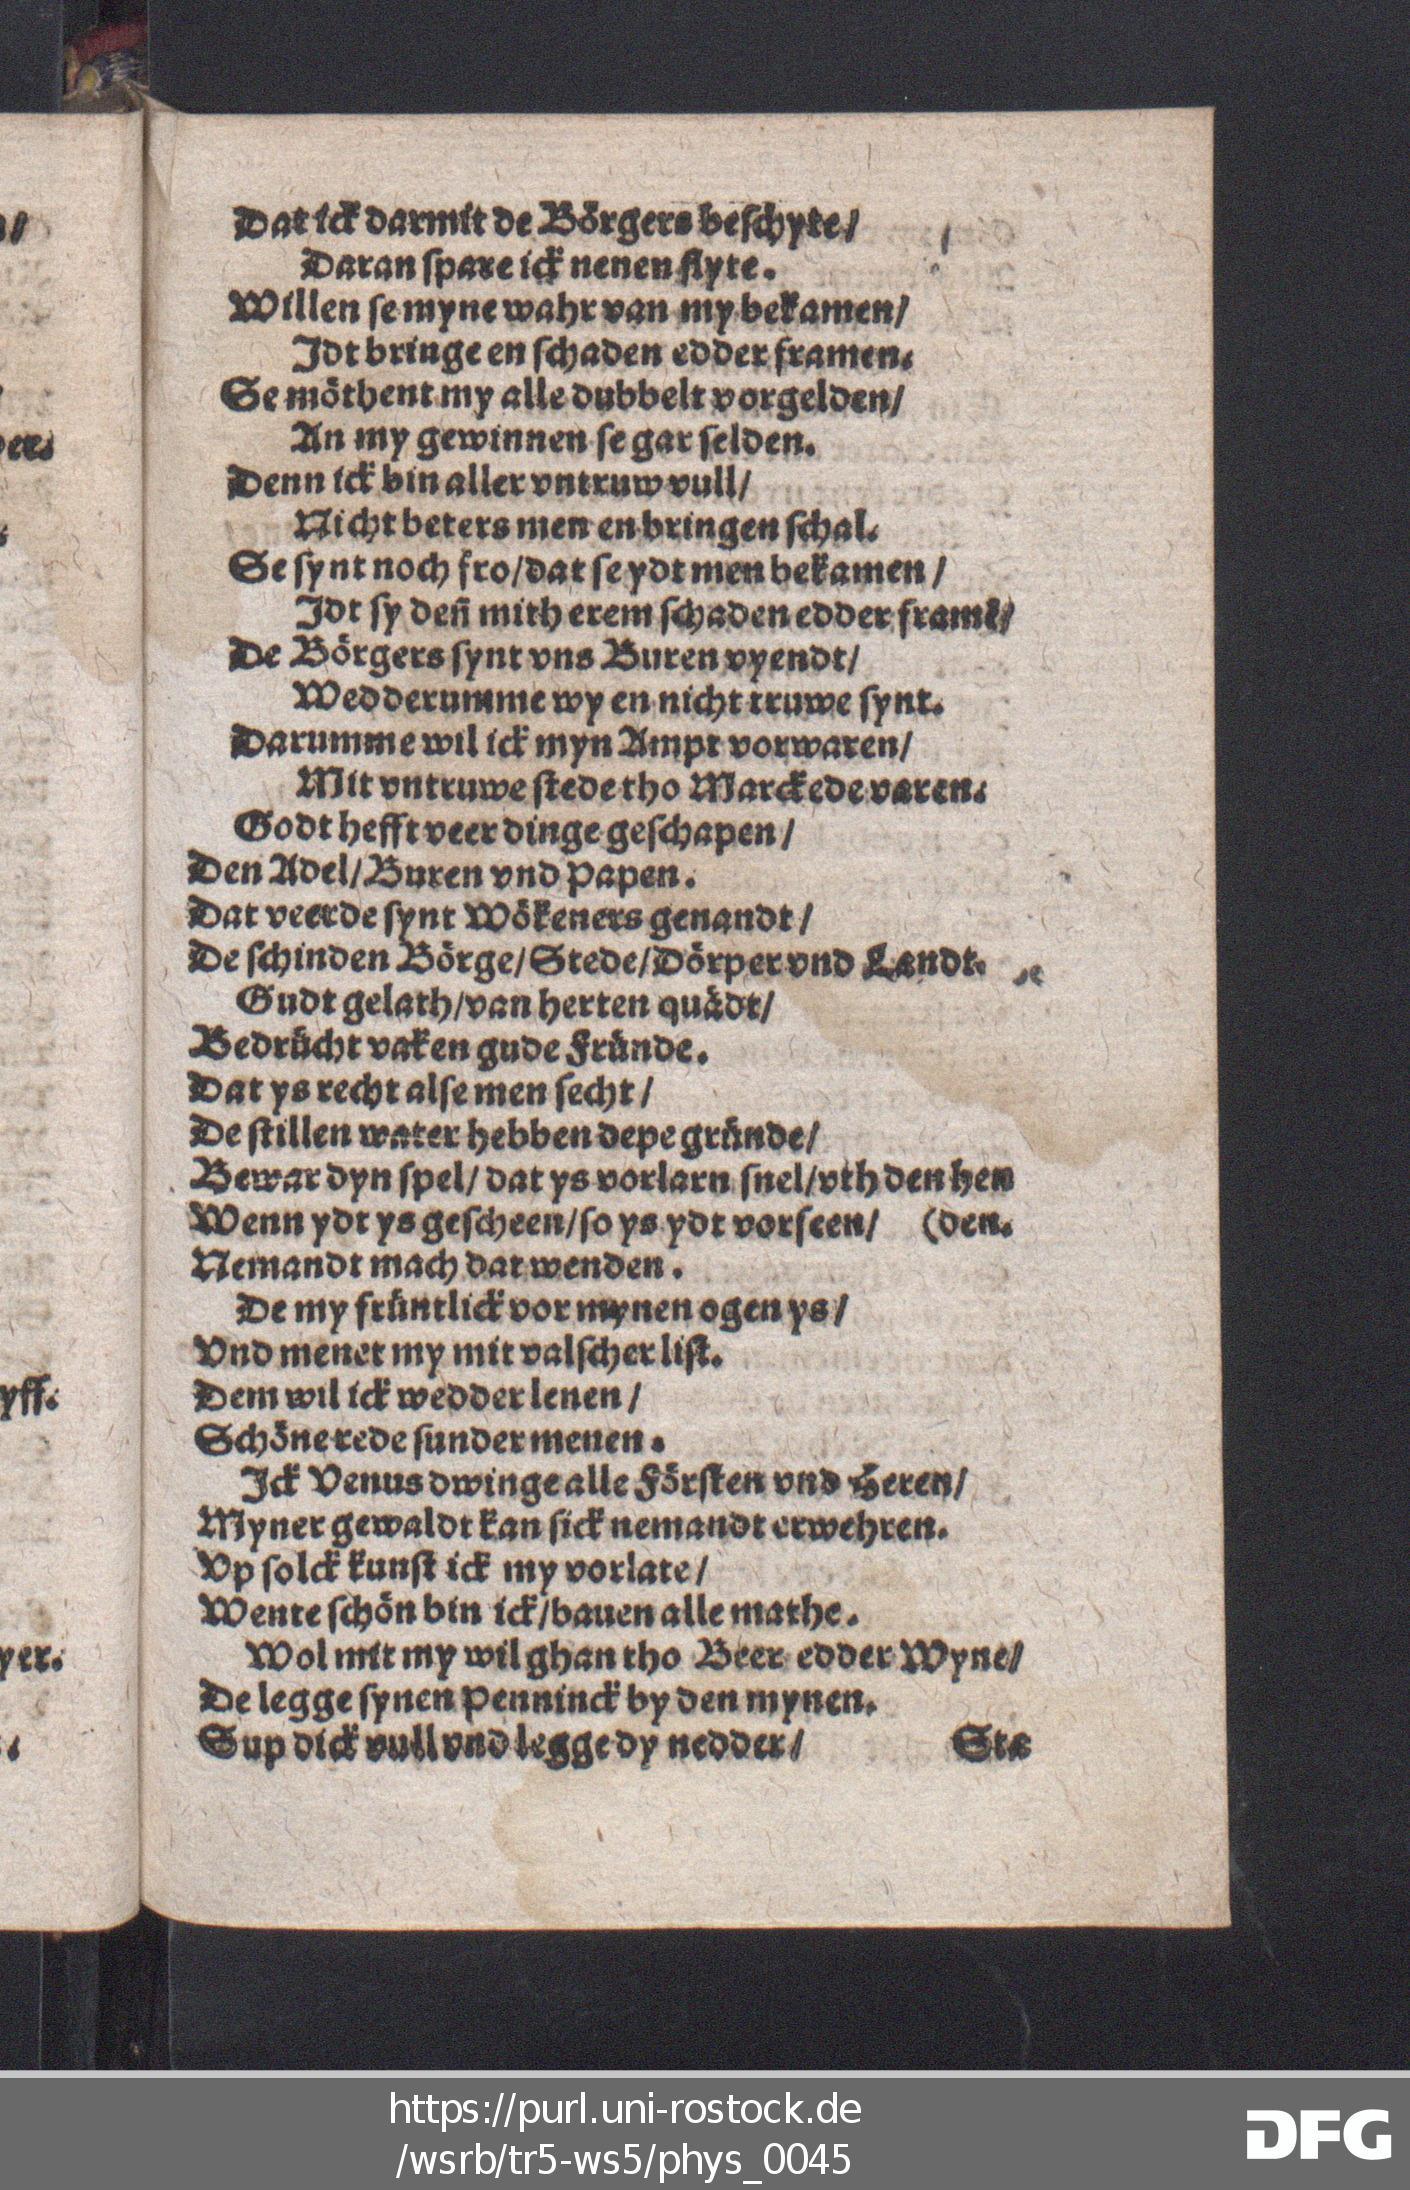 Dat ick darmit de Börgers beſchyte/
Daran ſpare ick nenen flyte.
Willen ſe myne wahr van my bekamen/
Idt bringe en ſchaden edder framen.
Se möthent my alle dubbelt vorgelden/
An my gewinnen ſe gar ſelden.
Denn ick bin aller vntruw vull/
Nicht beters men en bringen ſchal.
Se ſynt noch fro/dat ſe ydt men bekamen/
Idt ſy deñ mith erem ſchaden edder framē/
De Börgers ſynt vns Buren vyendt/
Wedderumme wy en nicht truwe ſynt.
Darumme wil ick myn Ampt vorwaren/
Mit vntruwe ſtede tho Marckede varen.
Godt hefft veer dinge geſchapen/
Den Adel/Buren vnd Papen.
Dat veerde ſynt Wökeners genandt/
De ſchinden Börge/Stede/Dörper vnd Landt.
Gudt gelath/van herten quädt/
Bedrücht vaken gude Fründe.
Dat ys recht alſe men ſecht/
De ſtillen water hebben depe gründe/
Bewar dyn ſpel/ dat ys vorlarn ſnel/vth den hen
Wenn ydt ys geſcheen/ſo ys ydt vorſeen/ (den.
Nemandt mach dat wenden.
De my früntlick vor mynen ogen ys/
Vnd menet my mit valſcher liſt.
Dem wil ick wedder lenen/
Schöne rede ſunder menen.
Ick Venus dwinge alle Förſten vnd Heren/
Myner gewaldt kan ſick nemandt erwehren.
Vp ſolck kunſt ick my vorlate/
Wente ſchön bin ick/bauen alle mathe.
Wol mit my wil ghan tho Beer edder Wyne/
De legge ſynen Penninck by den mynen.
Sup dick vull vnd legge dy nedder/ Sta
https://purl.uni-rostock.de
/wsrb/tr5-ws5/phys_0045
DFG